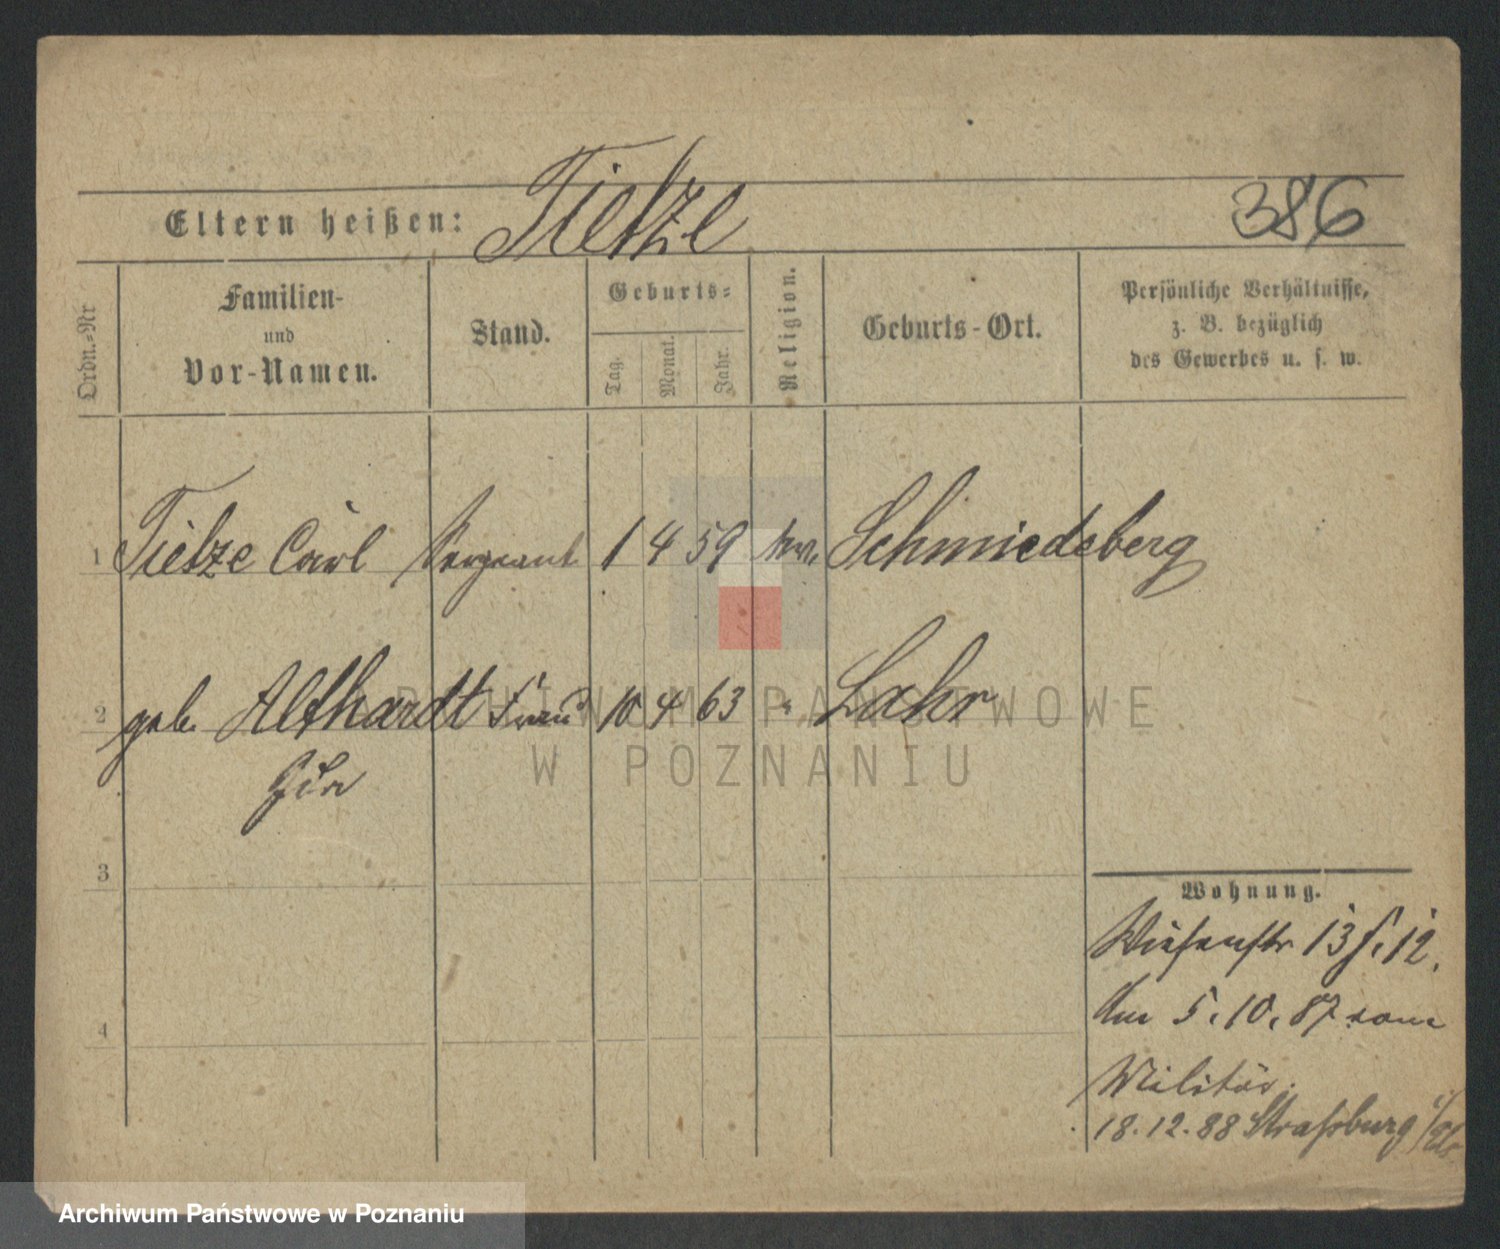 Eltern heißen: Tietze 386
Ordn.-Nr
Familien-
und
Vor-Namen.
Stand.
Geburts-
Tag.
Monat.
Jahr.
Religion.
Geburts-Ort.
Persönliche Verhältnisse,
z. B. bezüglich
des Gewerbes u. s. w.
1 Tietze Carl Sergeant 1 4 59 Schmiedeberg
2 geb. Althardt Frau 10 4 63 " Lahr
3
4
Wohnung.
Wiesenstr 13 f. 12.
5. 10. 87 vom
Militär.
18. 12. 88 Straßburg i/Els
ARCHIWUM PAŃSTWOWE
W POZNANIU
Archiwum Państwowe w Poznaniu